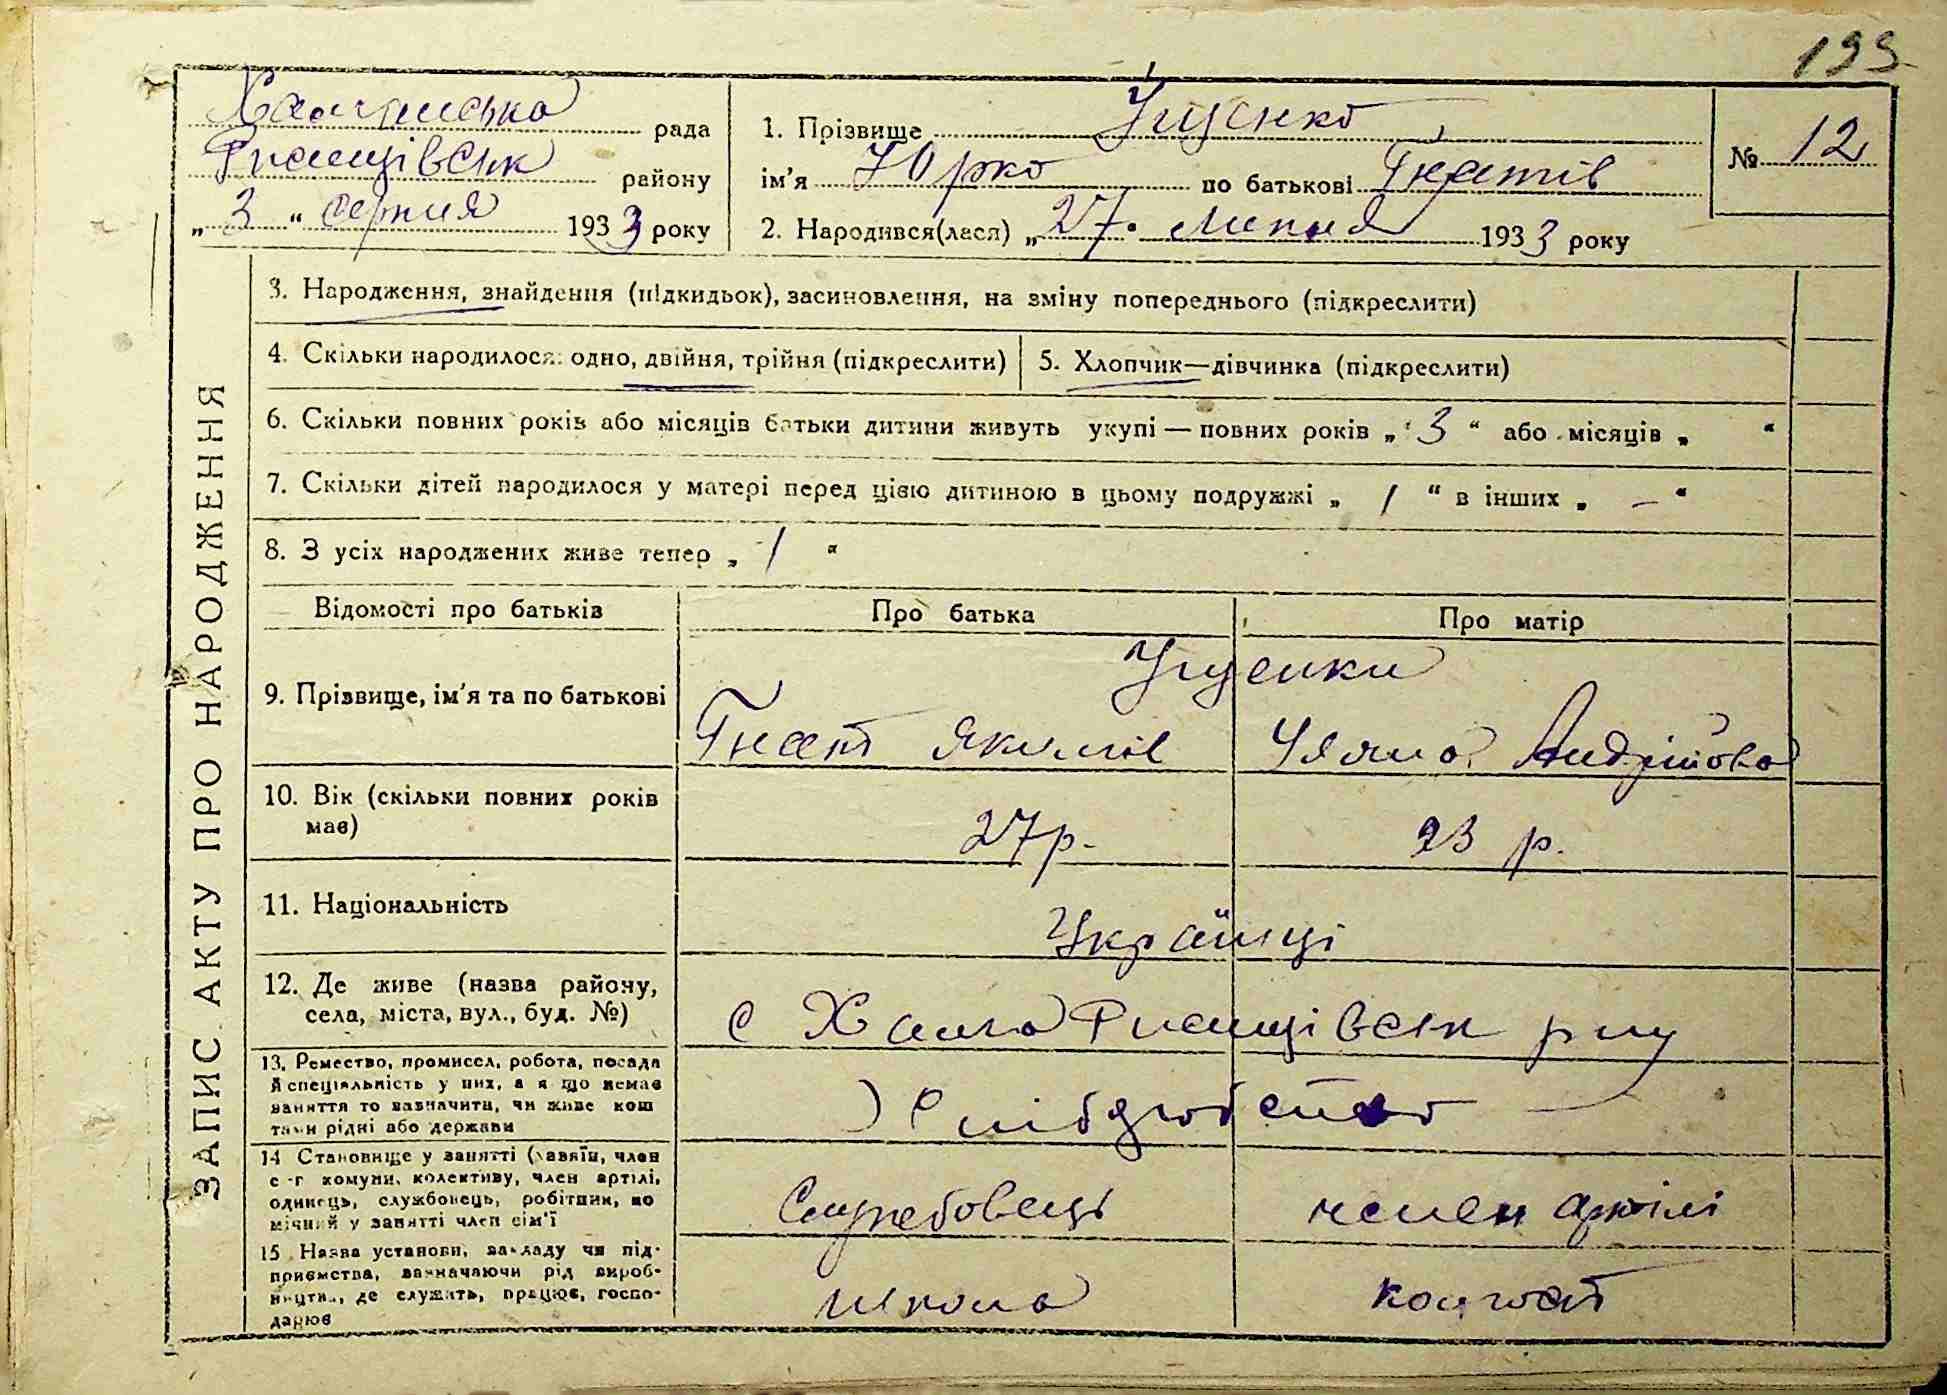 193
рада
району
„3“ серпня 1933 року
1. Прізвище Ущенко
ім'я Юрко по батькові Гнатів
2. Народився(лася) „27. липня 1933 року
№ 12
ЗАПИС АКТУ ПРО НАРОДЖЕННЯ
3. Народження, знайдення (підкидьок), засиновлення, на зміну попереднього (підкреслити)
4. Скільки народилося: одно, двійня, трійня (підкреслити)
5. Хлопчик—дівчинка (підкреслити)
6. Скільки повних років або місяців батьки дитини живуть укупі — повних років „3“ або місяців „ “
7. Скільки дітей народилося у матері перед цією дитиною в цьому подружжі „1“ в інших „–“
8. З усіх народжених живе тепер „1“
Відомості про батьків
Про батька
Про матір
9. Прізвище, ім'я та по батькові
Ущенки
Гнат Якимів
Уляна Андрійова
10. Вік (скільки повних років
має)
27 р.
23 р.
11. Національність
Українці
12. Де живе (назва району,
села, міста, вул., буд. №)
с
13. Ремество, промисел, робота, посада
й спеціяльність у них, а я що немає
заняття то вазначити, чи живе кош
тами рідні або держави
14 Становище у занятті (хазяїн, член
с-г комуни, колективу, член артілі,
одинець, службовець, робітник, по
мічний у занятті член сім'ї
Службовець
член артілі
15 Назва установи, закладу чи під-
приємства, зазначаючи рід вироб-
ництва, де служить, працює, госпо-
дарює
школа
колгосп